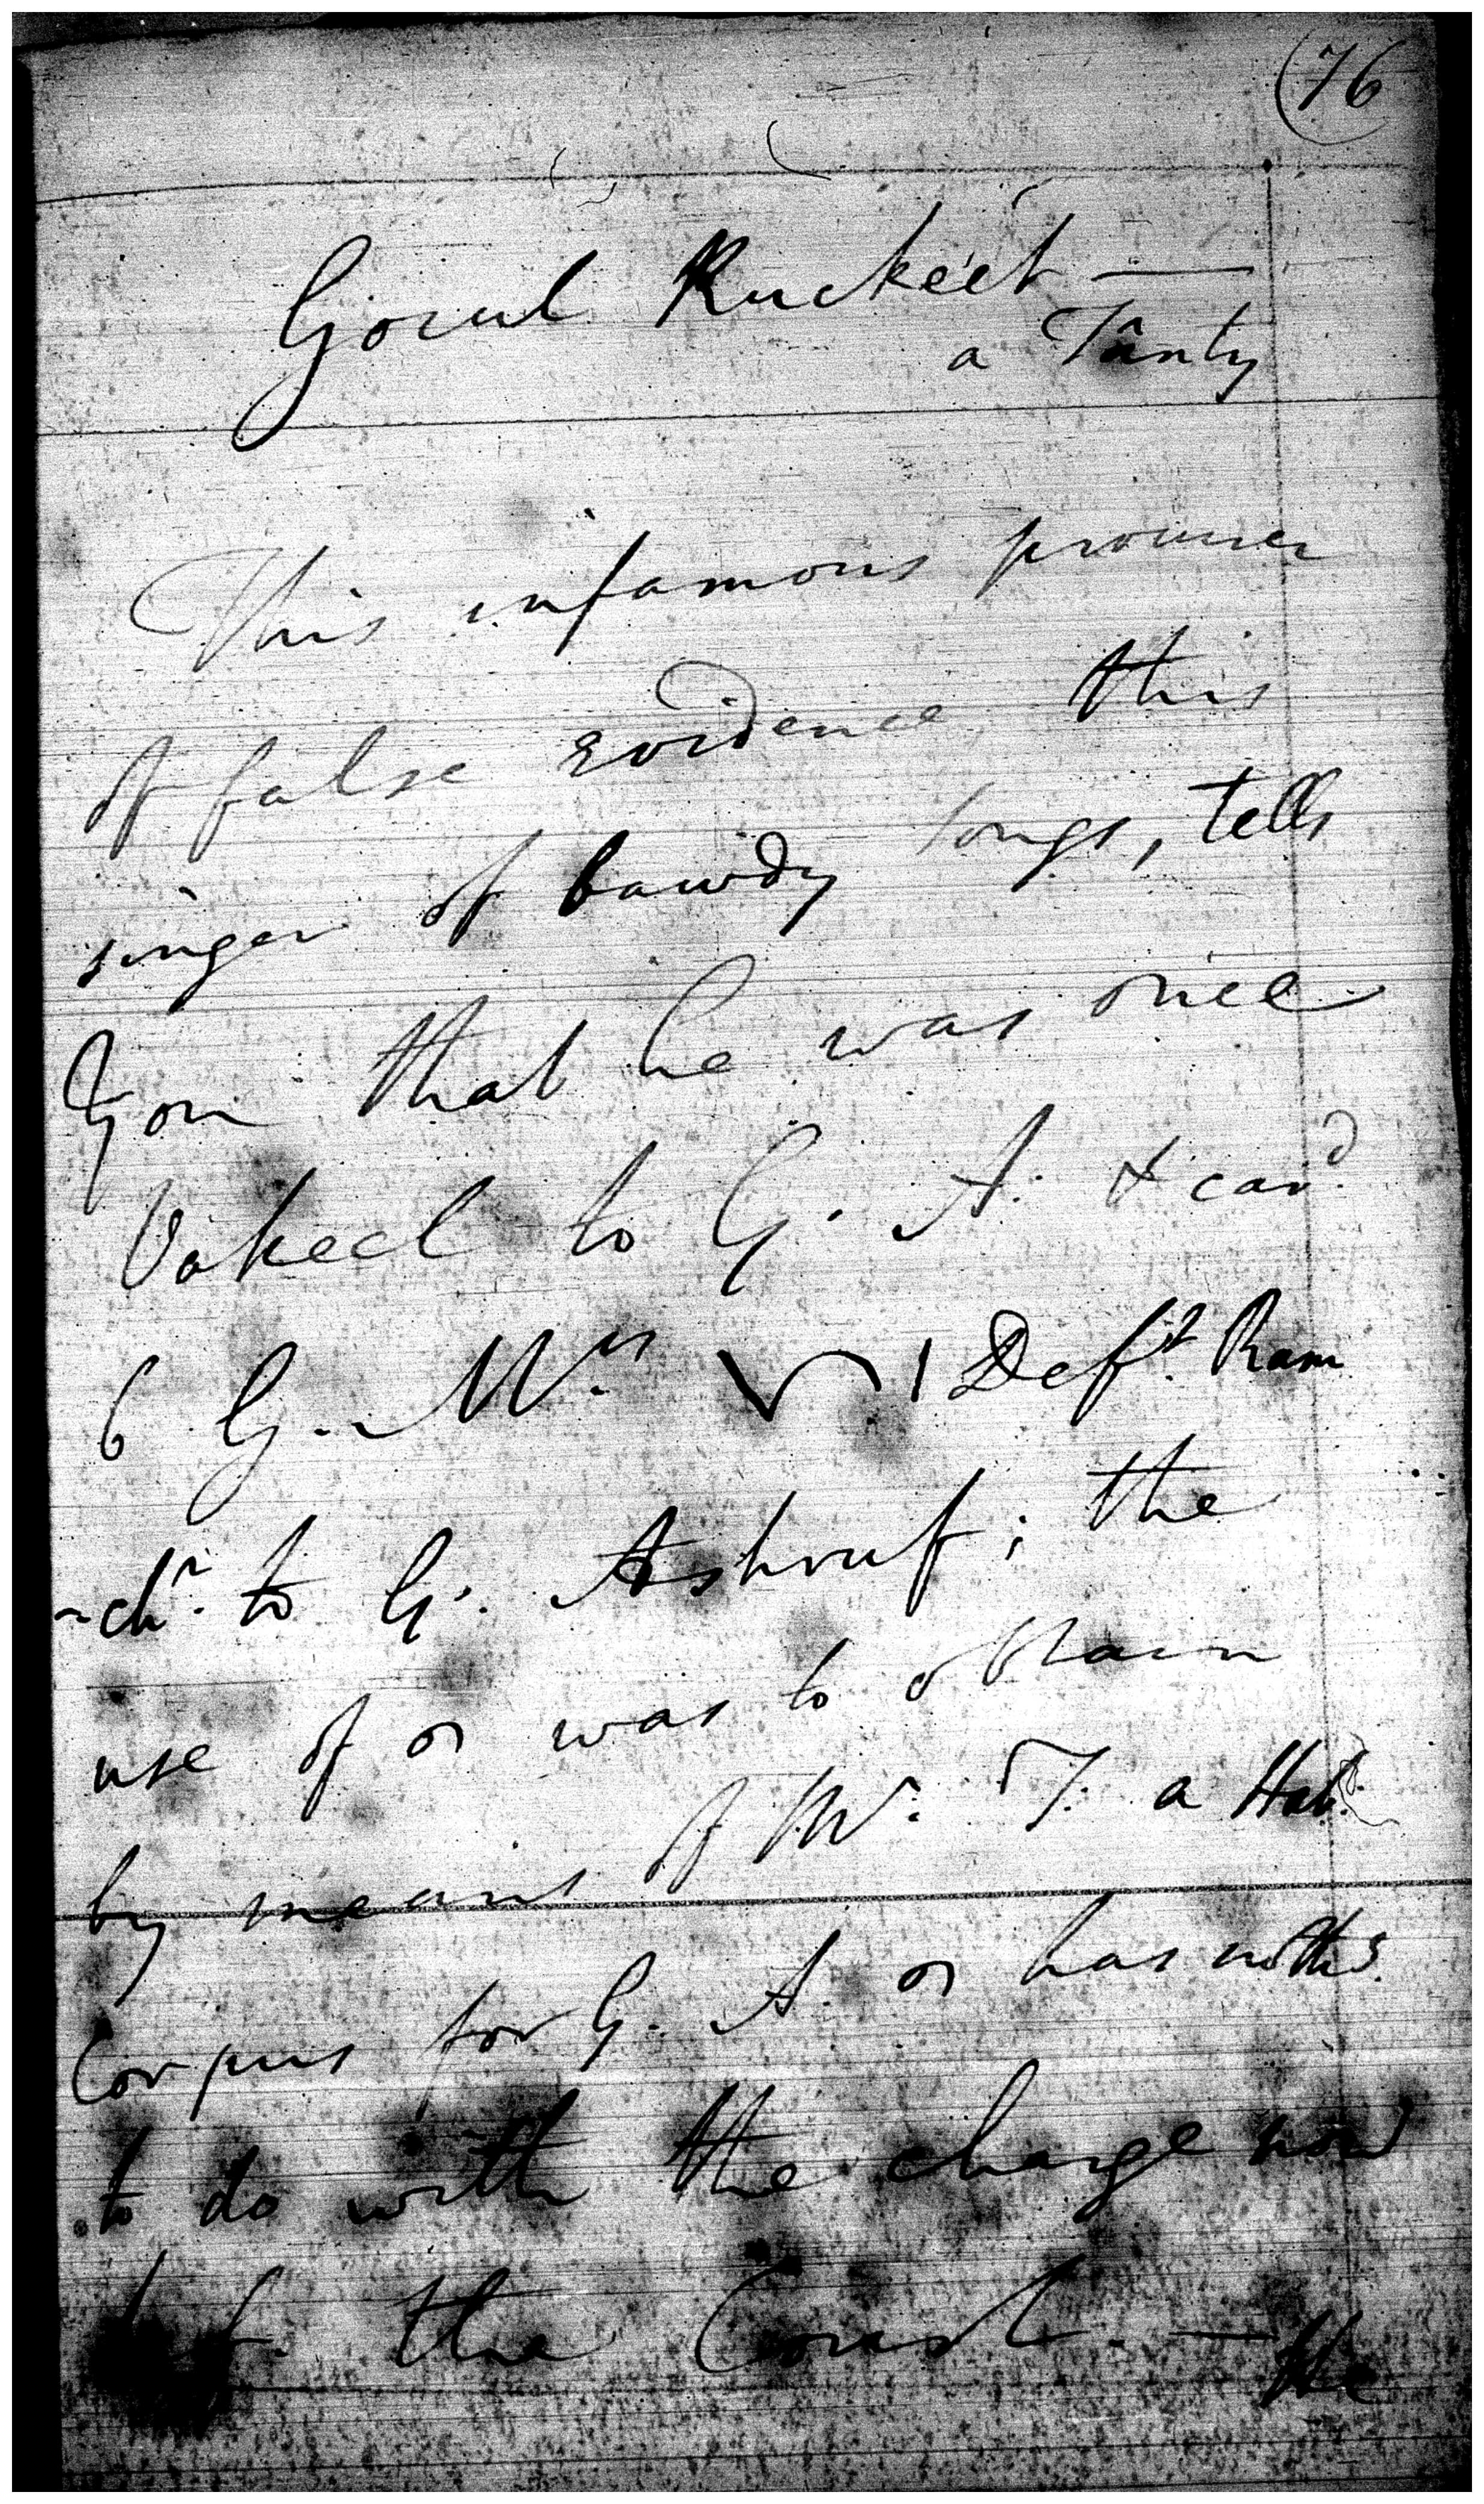 76
Gocul Ruckeet —
a Tânty
This infamous procurer
of false evidence, this
singer of bawdy songs, tells
you that he was once
Vakeel to G. A. & car.d
6 G. M.rs Deft. Ram
-ch.n to G. Ashruf; the
use of
was to obtain
by means of Mr. T. a Hab:
Corpus for G. A.
has noth.g
to do with the charge now
bef. the Court. —
He